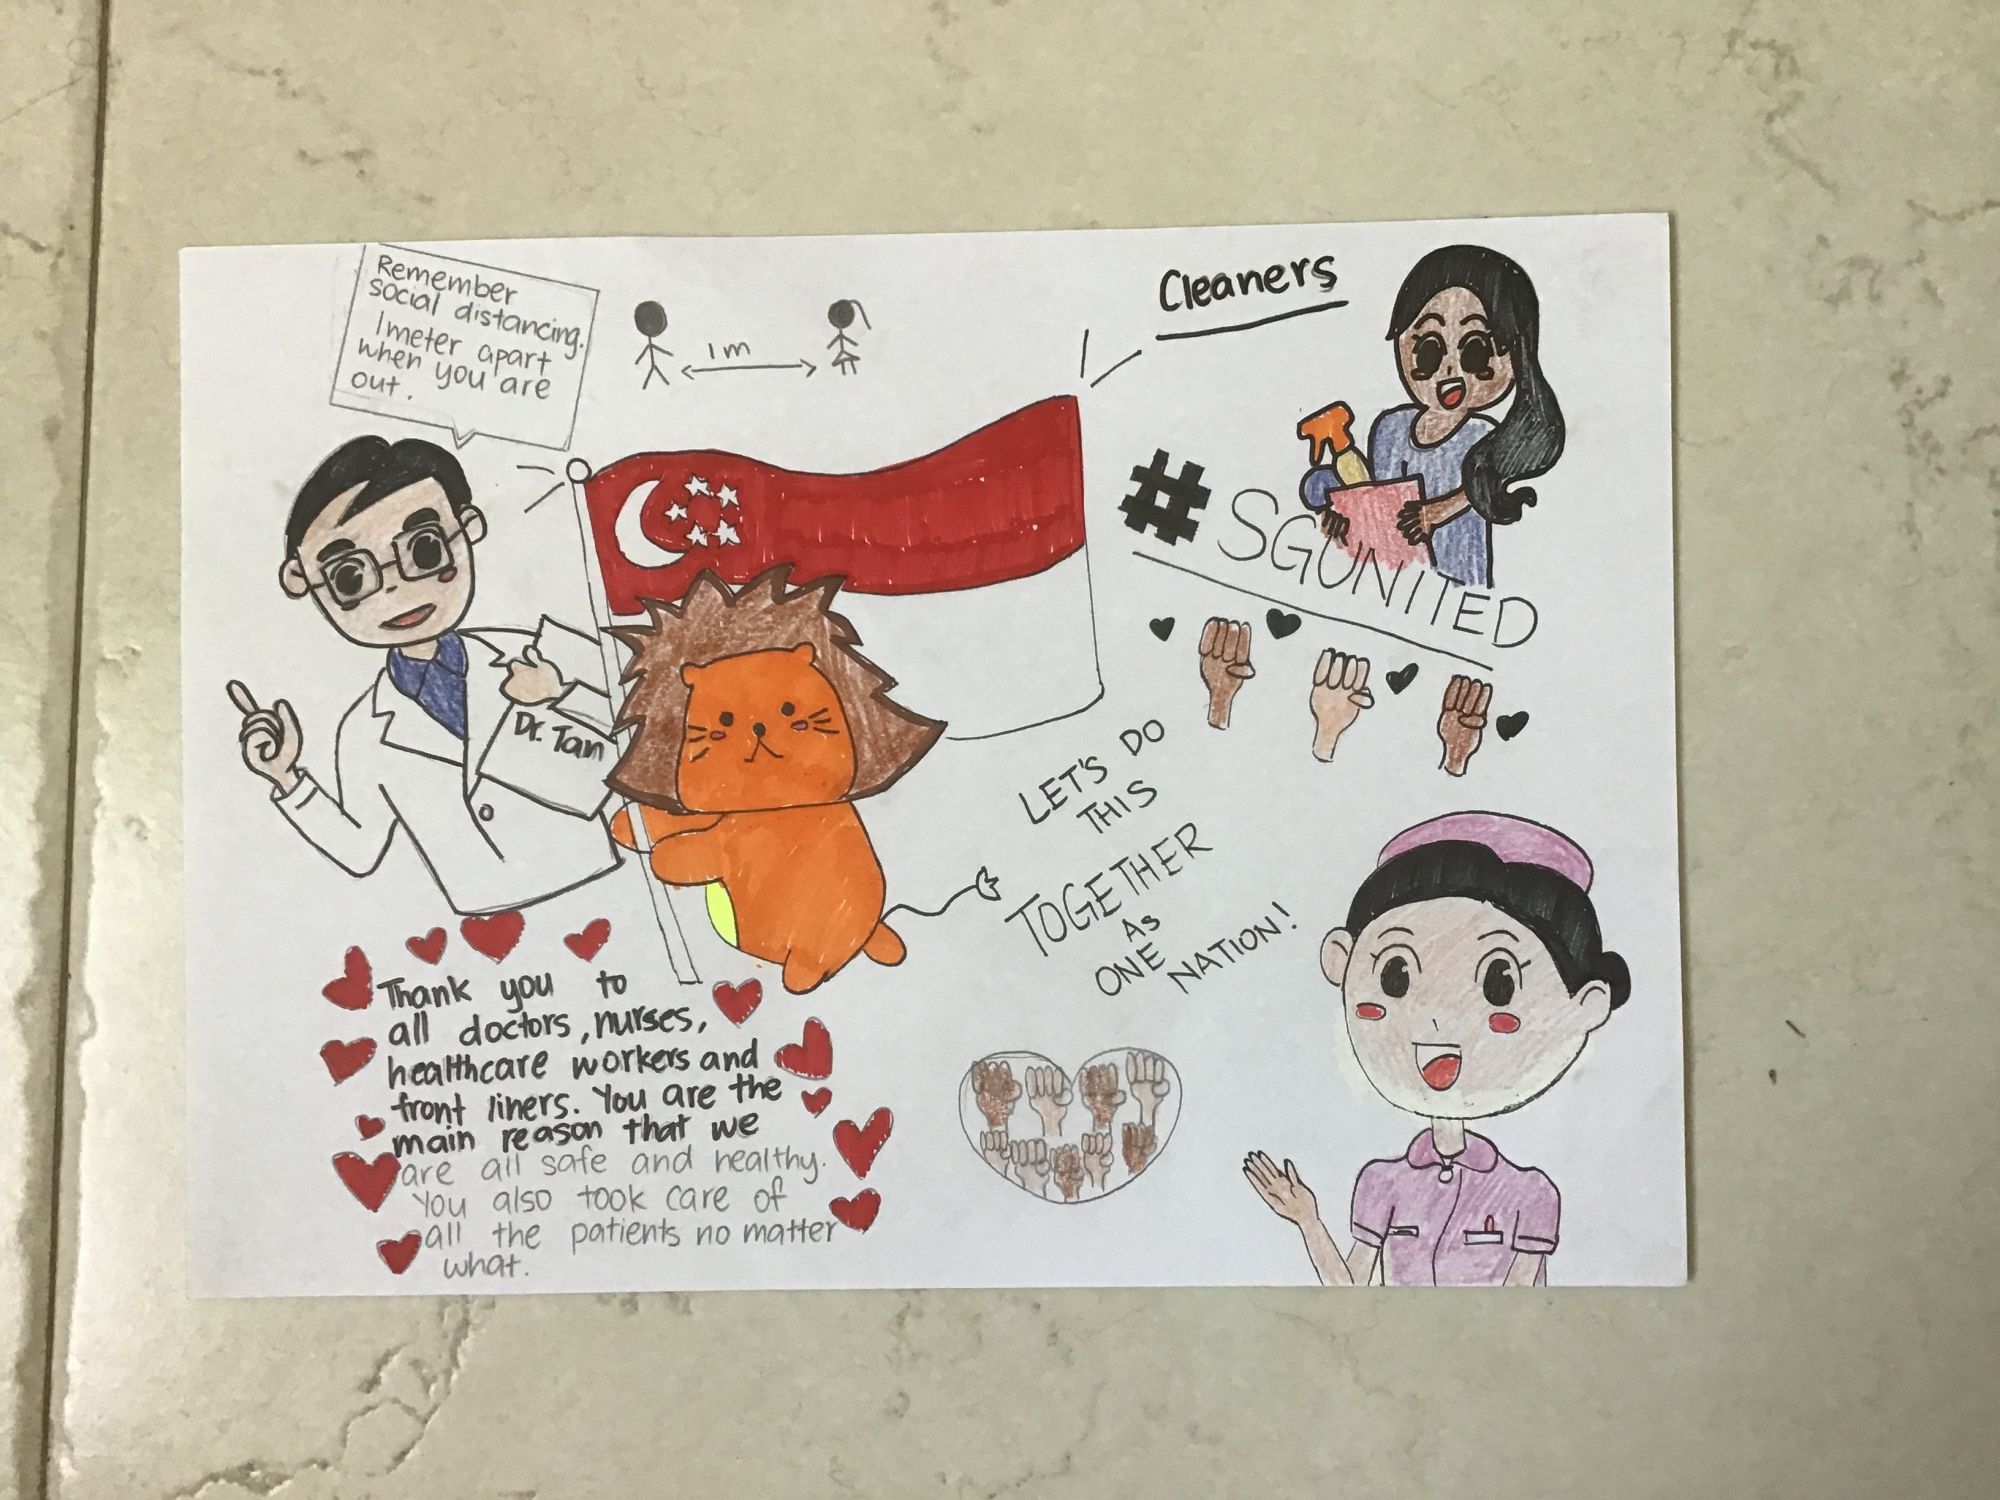 Remember
social distancing.
1 meter apart
when you are
out.
1m
Cleaners
#SGUNITED
Dr. Tan
LET'S DO
THIS
TOGETHER
AS
ONE
NATION!
Thank you to
all doctors, nurses,
healthcare workers and
front liners. You are the
main reason that we
are all safe and healthy.
You also took care of
all the patients no matter
what.